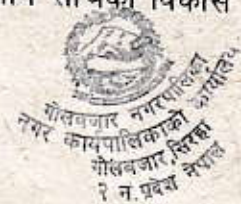 विकास
गोलबजार नगरपालिका
नगर कार्यपालिकाको कार्यालय
गोलबजार, सिरहा
२ न. प्रदेश नेपाल